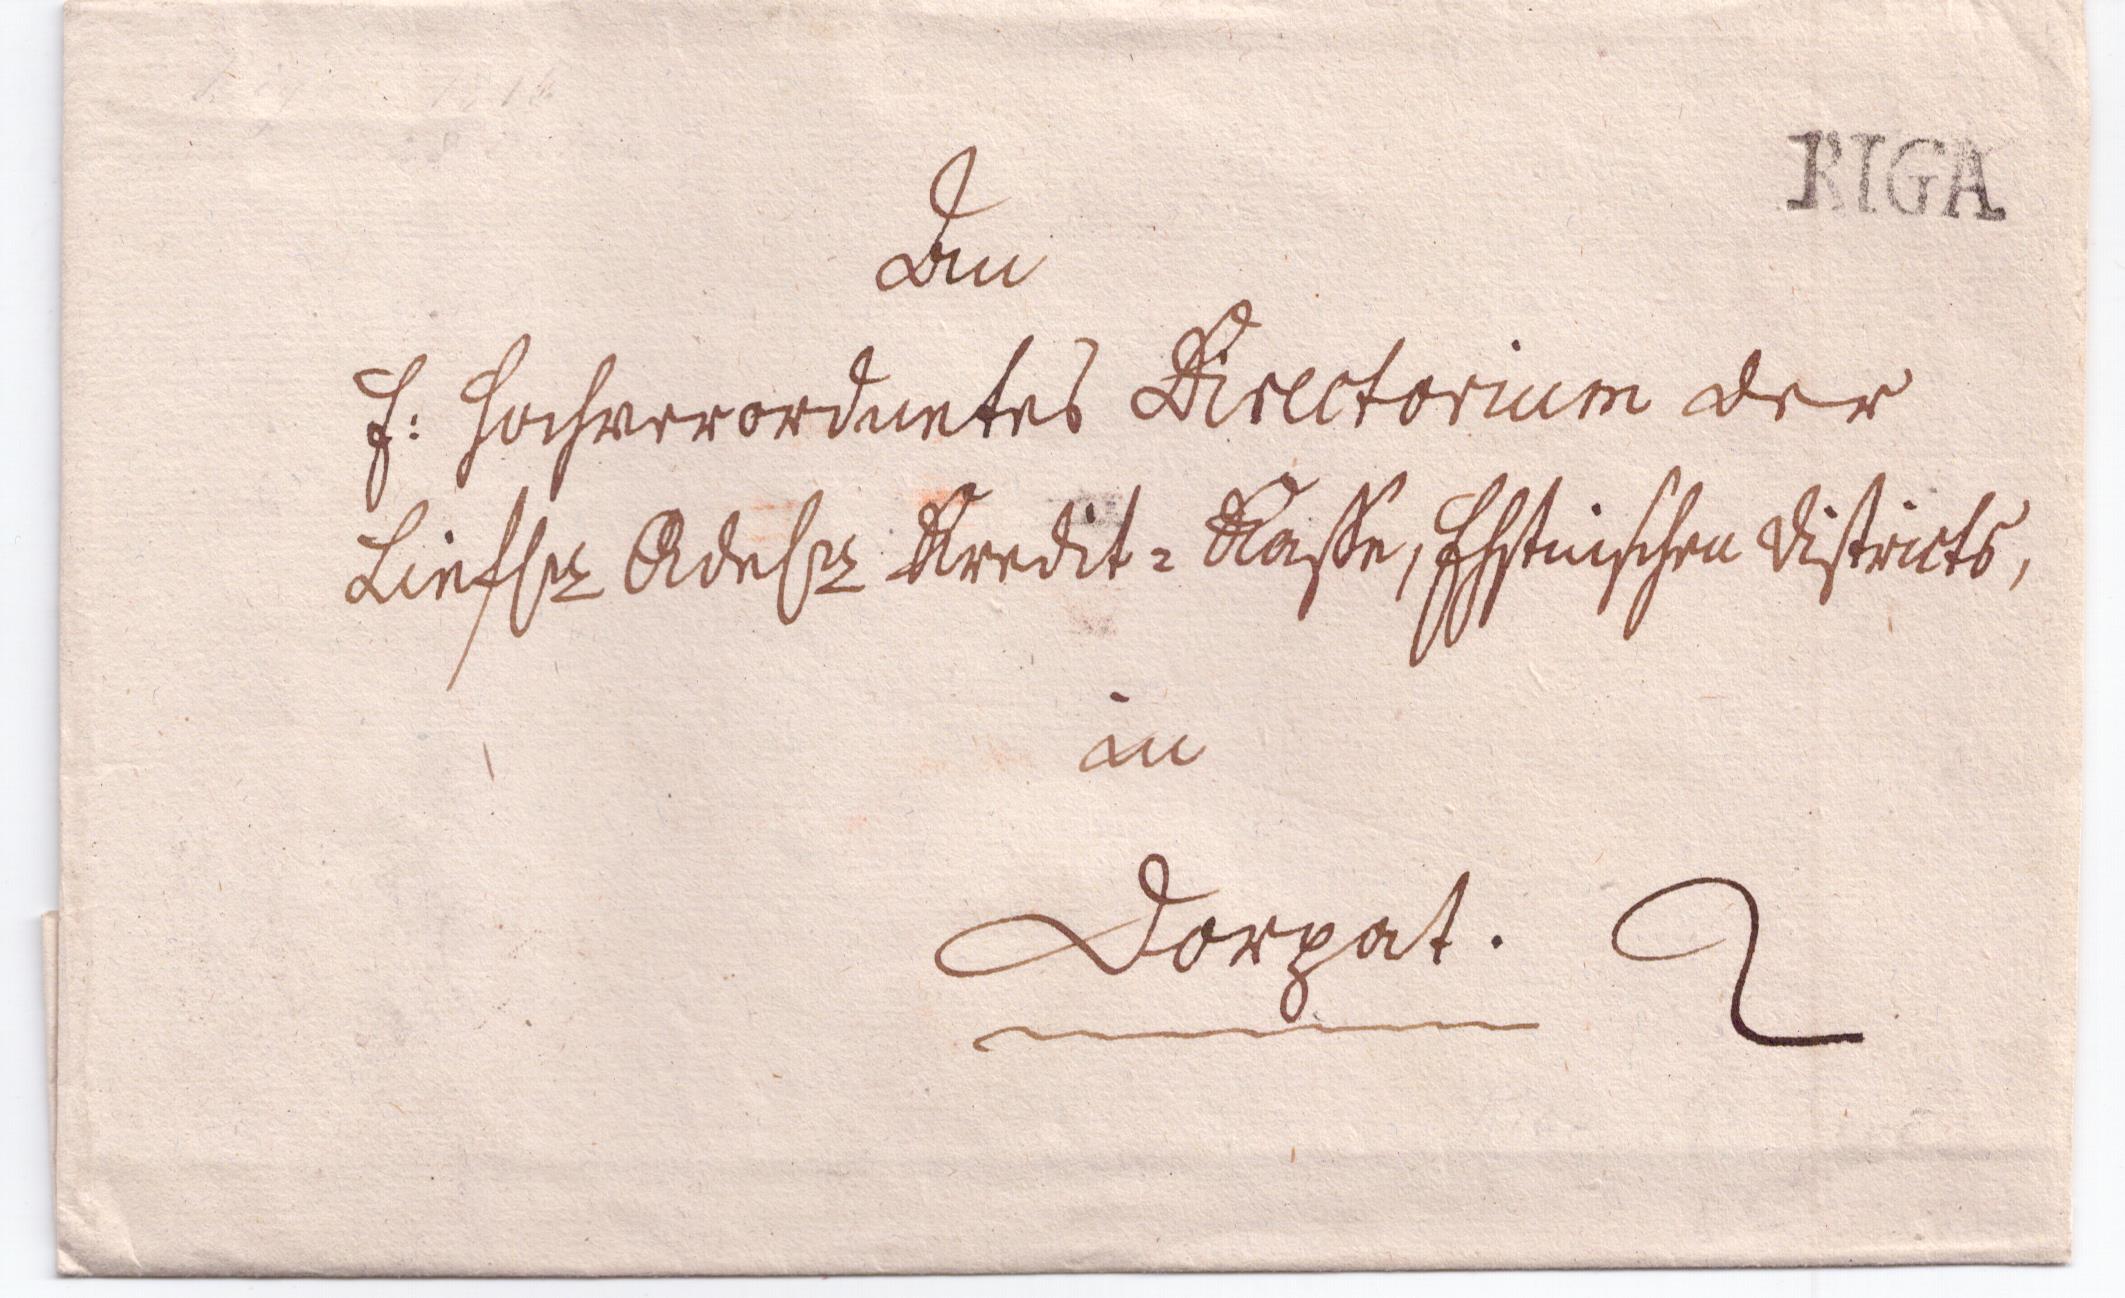 RIGA
An
E: Hochverordnetes Directorium der
Liefl. Adel. Kredit = Kasse, Ehstnischen Districts,
in
Dorpat.